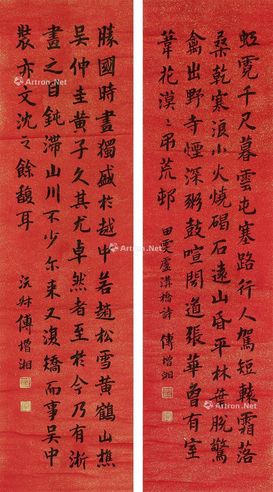 虹霓千尺暮雲屯塞路行人駕短轅霜落
桑乾寒浪小火燒碣石遠山昏平林葉脫驚
禽出野寺煙深粥鼓喧聞道張華曾有室
葦花漠々弔荒邨 田雯盧溝橋詩 傅增湘
勝國時畫獨盛於越中若趙松雪黃鶴山樵
吳仲圭黃子久其尤卓然者至於今乃有浙
畫之目鈍滯山川不少尔來又復矯而事吳中
裝亦文沈之餘馥耳 沅叔傅增湘
Artron.Net
Artron.Net
Artron.Net
Artron.Net